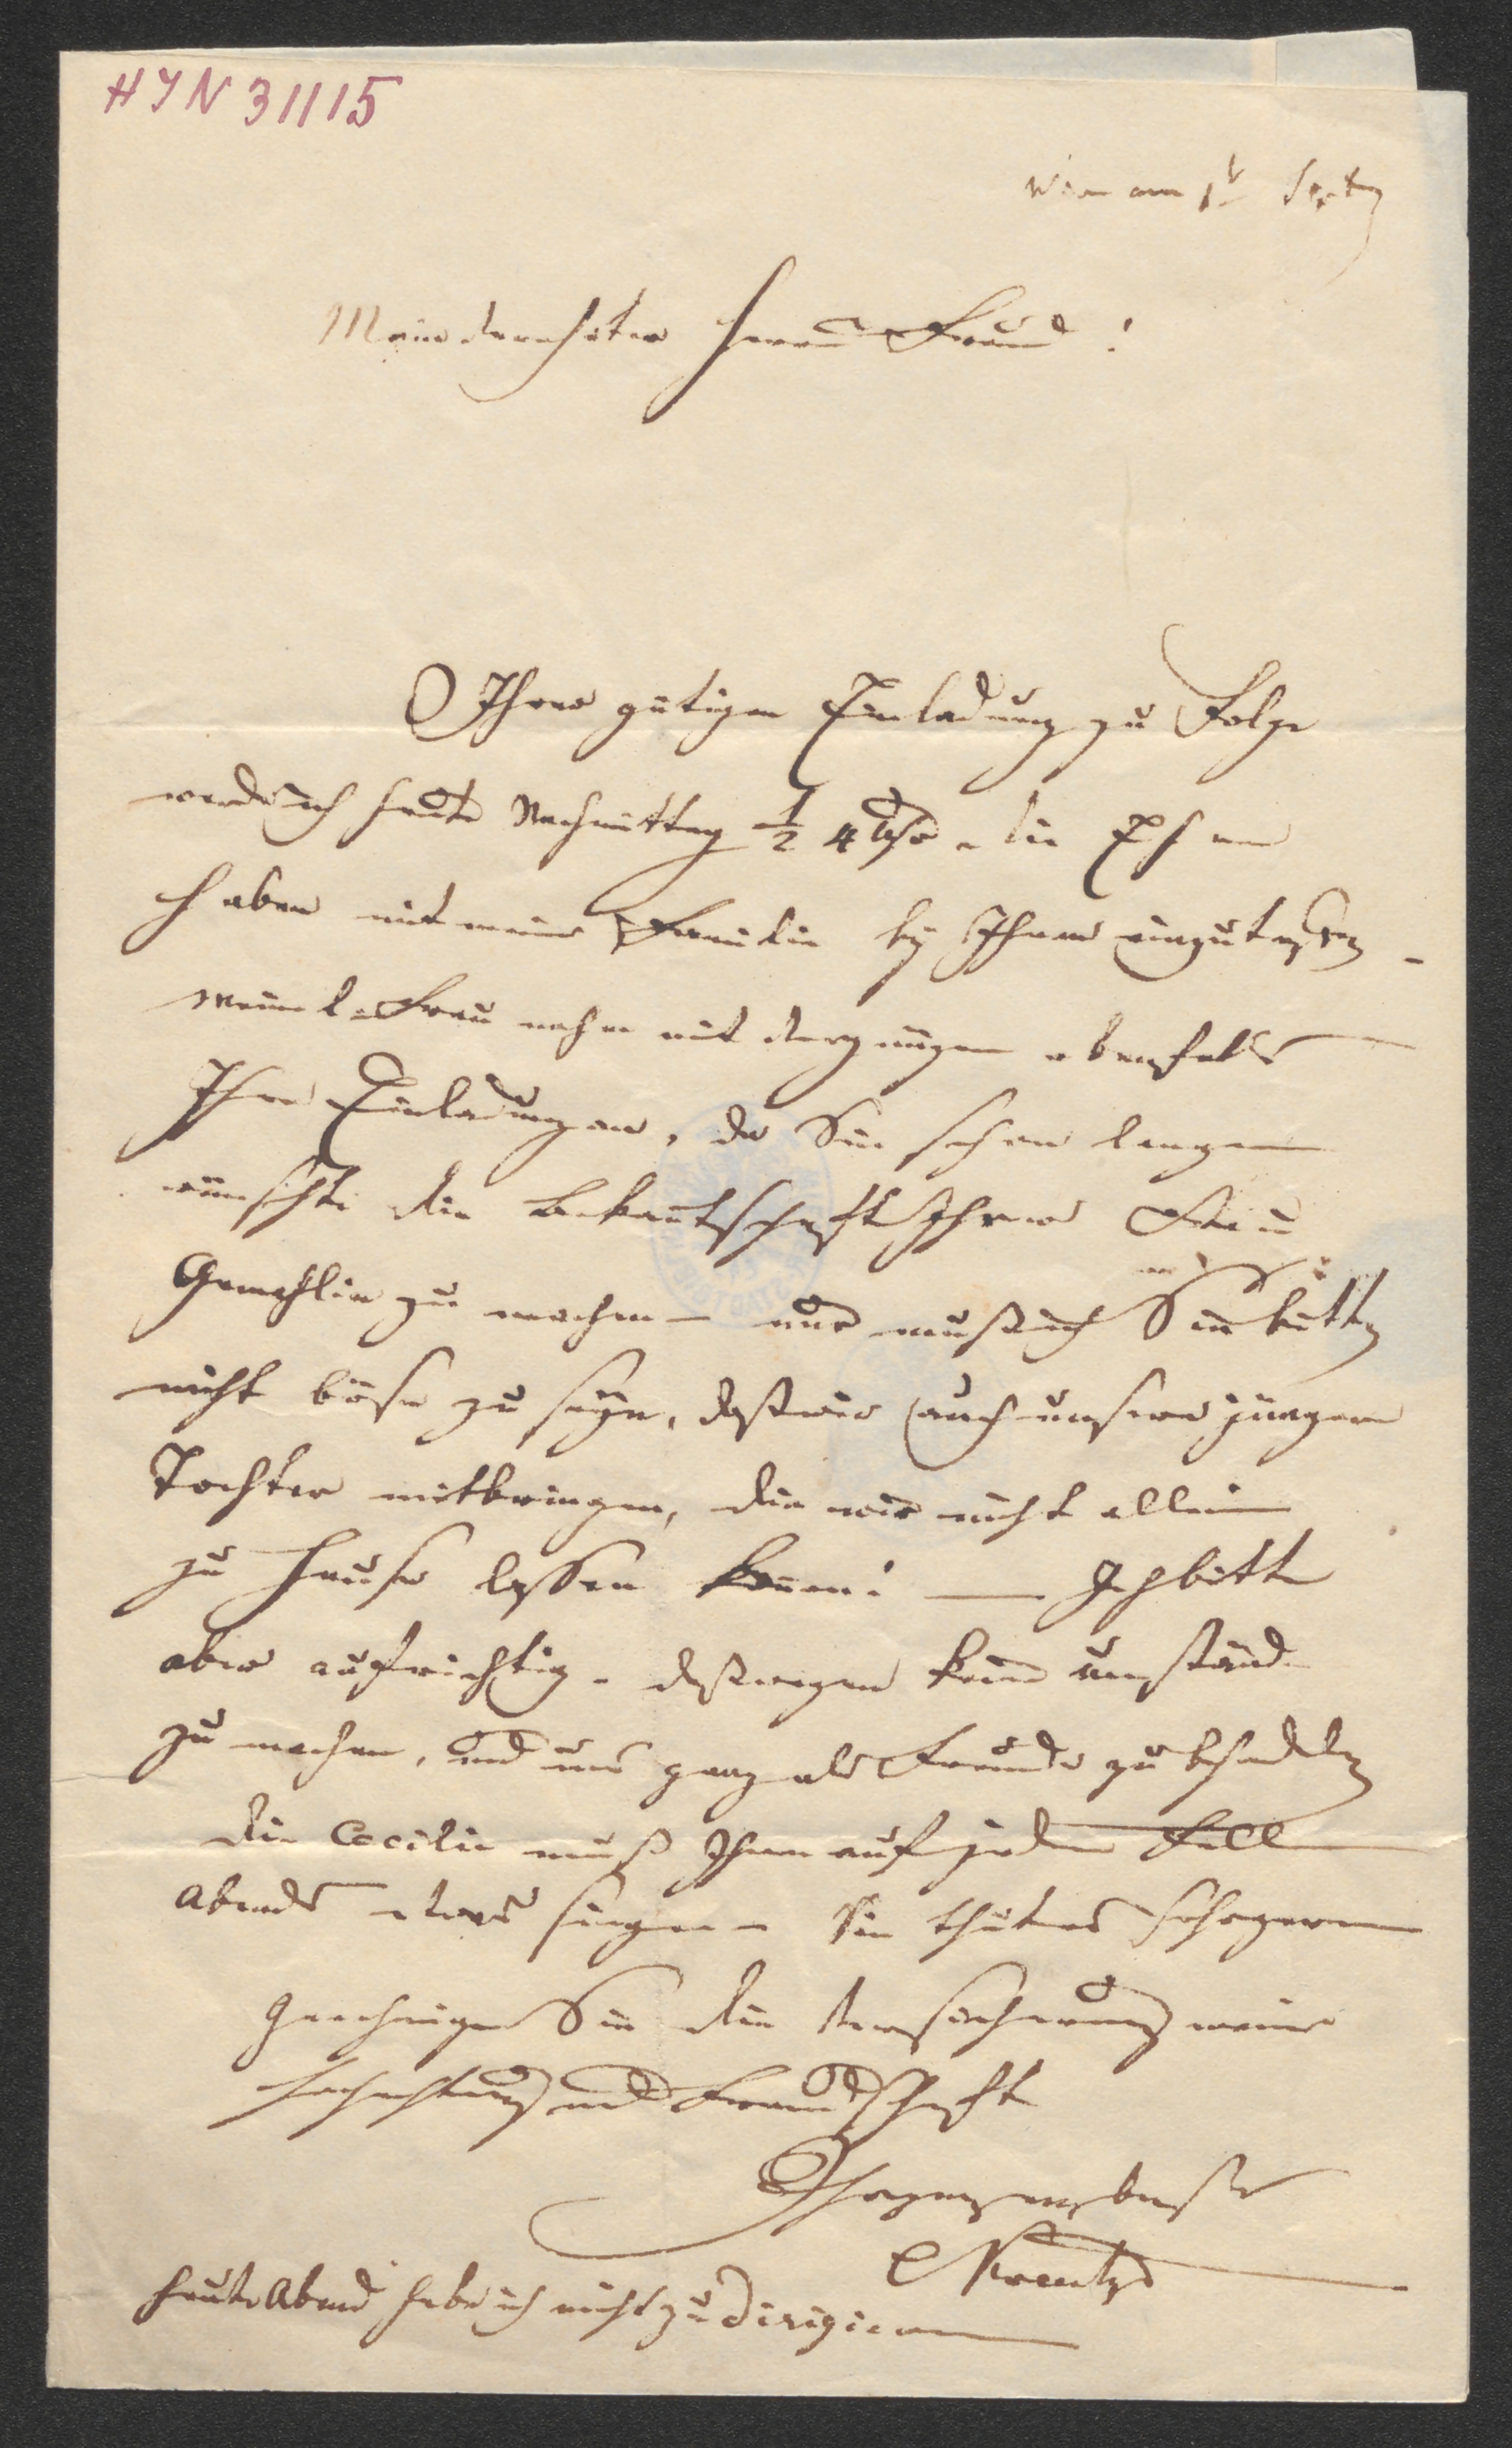 HIN 31115
Wien am 1t Septbr
Mein verehrter Herr und Freund!
Ihrer gütigen Einladung zu Folge
werde ich heute Nachmittag ½ 4 Uhr - die Ehre
haben mit meiner Familie bey Ihnen einzutreffen -
meine l. Frau nahm mit Vergnügen ebenfalls
Ihre Einladung an, da Sie schon lange
wünschte die Bekanntschaft Ihrer Frau
Gemahlin zu machen - nur muß ich Sie bitten
nicht böse zu seyn, daß wir auch unsere jüngere
Tochter mitbringen, die wir nicht allein
zu Hause lassen können! — Ich bitte
aber aufrichtig - deßwegen keine Umstände
zu machen, und uns ganz als Freunde zu behandeln
die Cecilie muß Ihnen auf jeden Fall
Abends etwas singen - Sie thut es sehr gerne
Genehmigen Sie die Versicherung meiner
Hochachtung und Freundschaft
Ihr ganz ergebenster
C Kreutzer
heute Abend habe ich nicht zu dirigieren